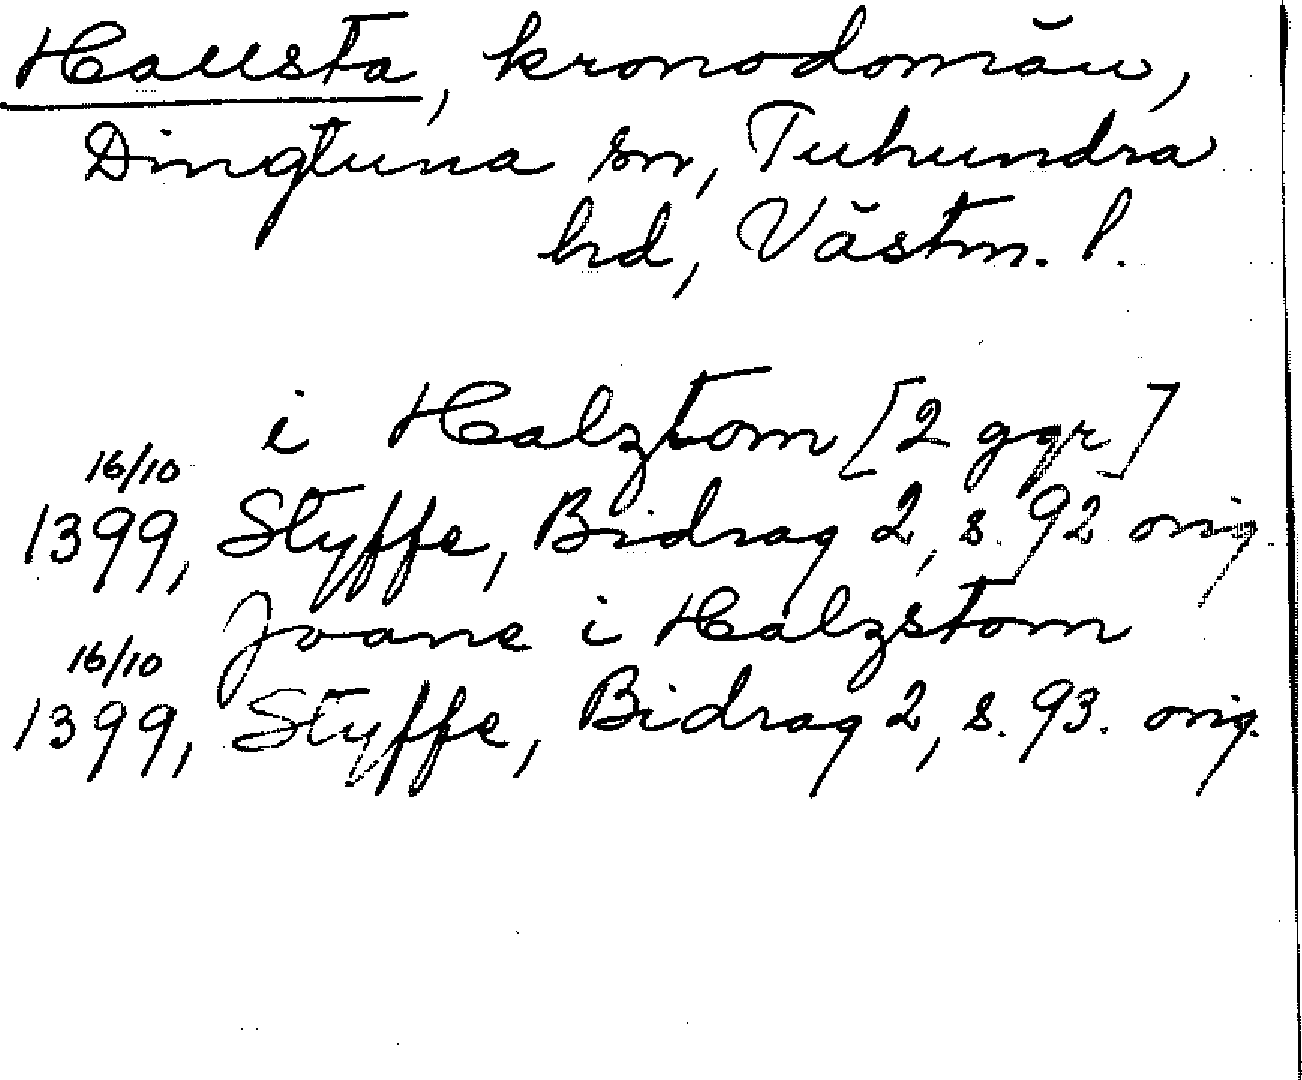 Hallsta, kronodomän,
Dingtuna sn, Tuhundra
hd, Västm. l.
i Halztom [2 ggr]
16/10
1399, Styffe, Bidrag 2, s. 92 orig.
Joane i Halzstom
16/10
1399, Styffe, Bidrag 2, s. 93. orig.